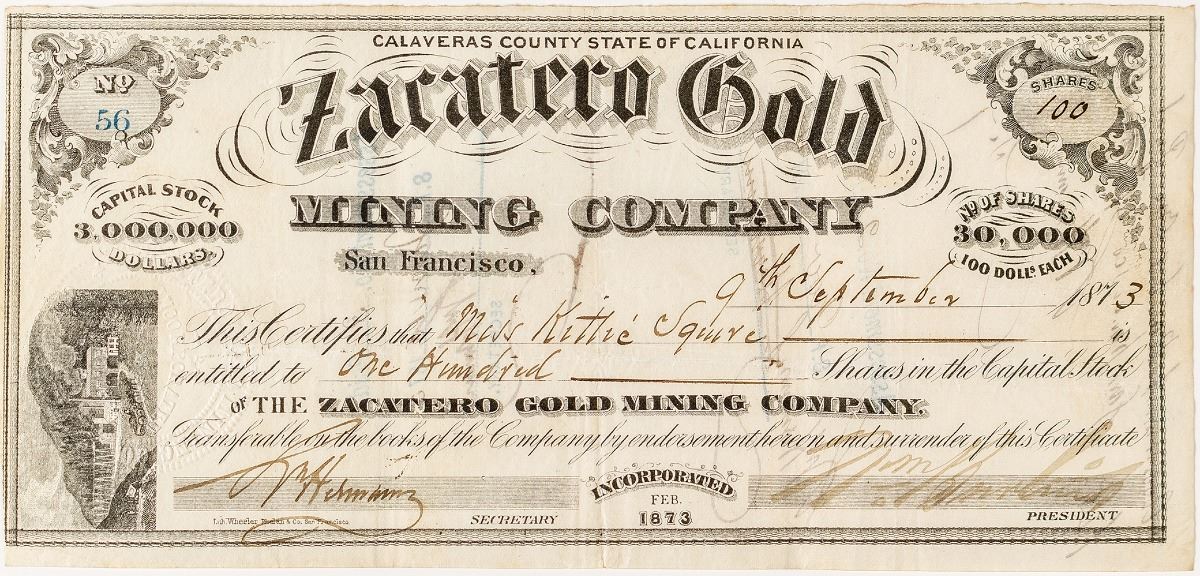 CALAVERAS COUNTY STATE OF CALIFORNIA
No
56
Zacatero Gold
SHARES
100
CAPITAL STOCK
3,000,000
DOLLARS.
MINING COMPANY
No OF SHARES
30,000
100 DOLLS EACH
San Francisco,
9th September 1873
This Certifies that Miss Kittie Squire is
entitled to One Hundred Shares in the Capital Stock
OF THE ZACATERO GOLD MINING COMPANY.
Transferable on the books of the Company by endorsement hereon and surrender of this Certificate
INCORPORATED
FEB.
1873
Lith. Wheeler & Co. San Francisco
SECRETARY
PRESIDENT